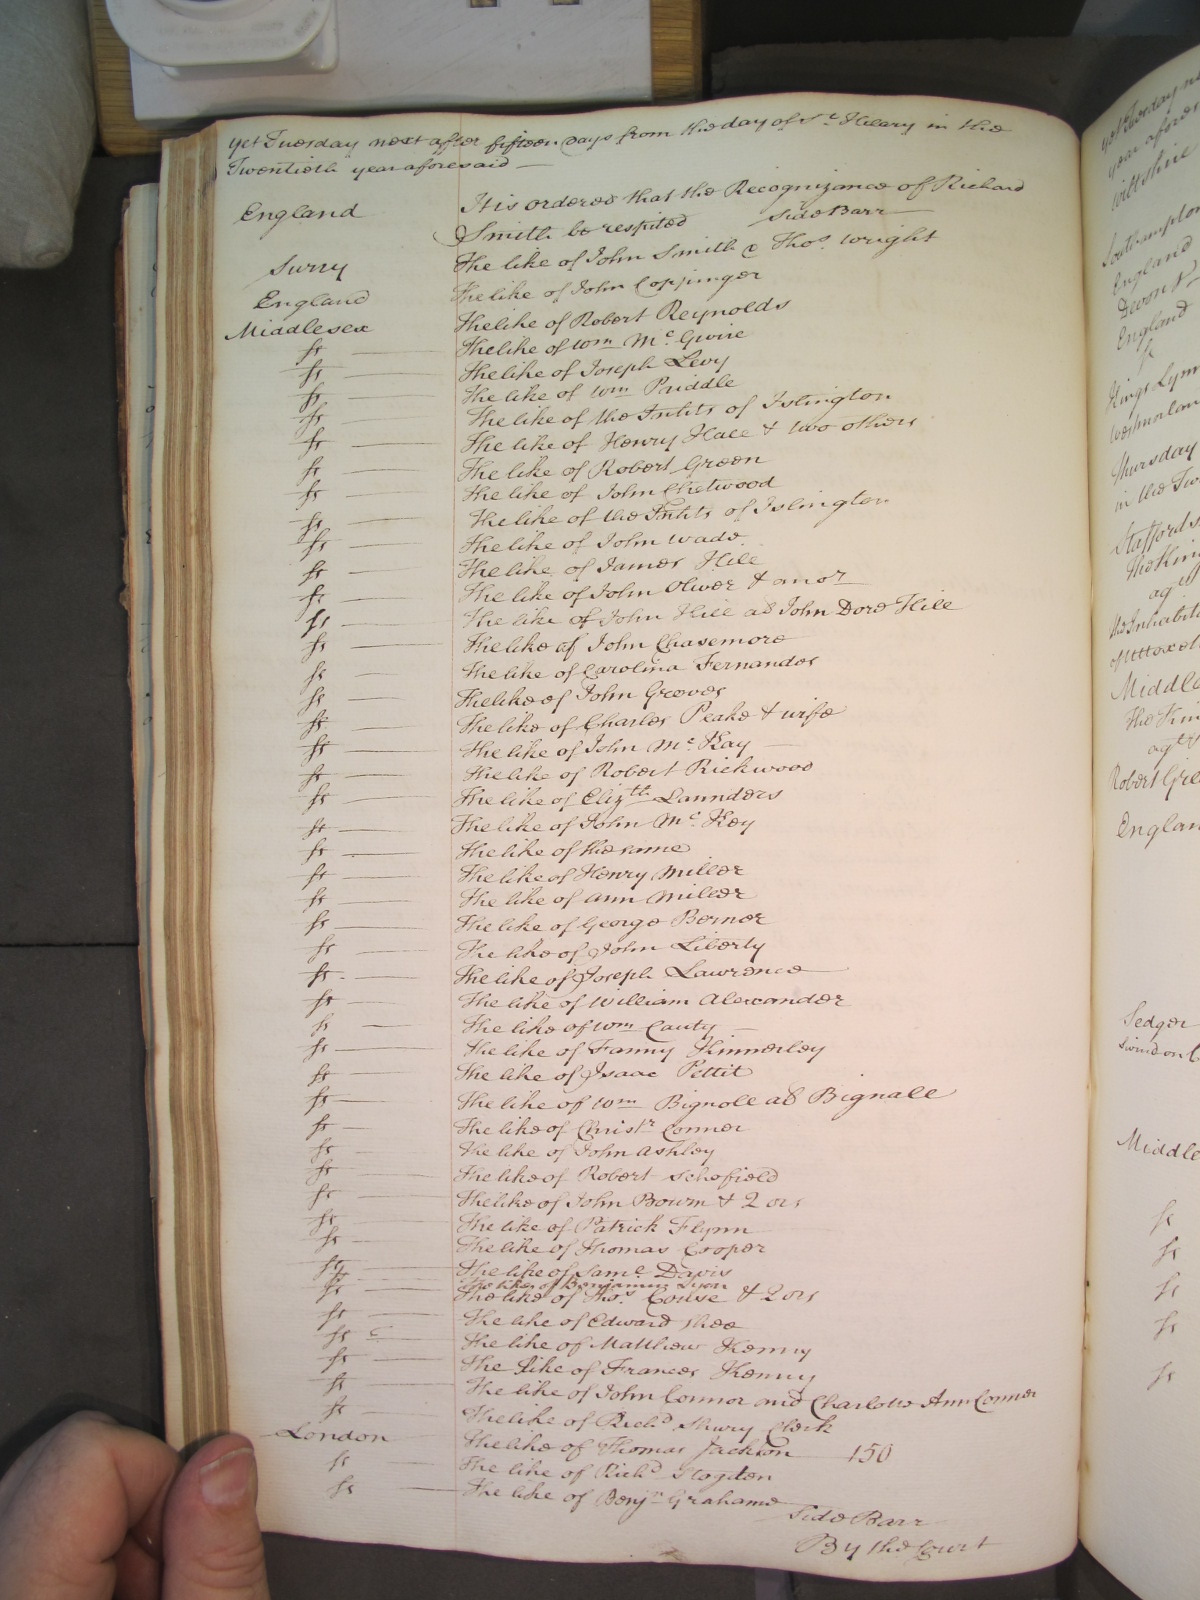 Yet Tuesday next after fifteen Days from the day of St. Hilary in the
Twentieth year aforesaid —
England It is ordered that the Recognizance of Richard
Smith be respited Side Barr
Surry The like of John Smith & Thos. Wright
England The like of John Coppinger
Middlesex The like of Robert Reynolds
fs — The like of Wm Mc. Gwire
fs — The like of Joseph Levy
fs — The like of Wm Priddle
fs — The like of the Inhts of Islington
fs — The like of Henry Hall & two others
fs — The like of Robert Green
fs — The like of John Chetwood
fs — The like of the Inhts of Islington
fs — The like of John Wade
fs — The like of James Hill
fs — The like of John Oliver & anor
fs — The like of John Hill als John Dore Hill
fs — The like of John Chasemore
fs — The like of Carolina Fernandes
fs — The like of John Greeves
fs — The like of Charles Peake & wife
fs — The like of John Mc. Kay —
fs — The like of Robert Rickwood
fs — The like of Elizth Saunders
fs — The like of John Mc. Key
fs — The like of the same
fs — The like of Henry Miller
fs — The like of Ann Miller
fs — The like of George Berner
fs — The like of John Liberty
fs — The like of Joseph Lawrence
fs — The like of William Alexander
fs — The like of Wm Cauty —
fs — The like of Fanny Kinnerley
fs — The like of Isaac Pettit
fs — The like of Wm Bignoll als Bignall
fs — The like of Christr Conner
fs — The like of John Ashley
fs — The like of Robert Schofield
fs — The like of John Bourn & 2 ors
fs — The like of Patrick Flynn
fs — The like of Thomas Cooper
fs — The like of Saml Davis
fs — The like of Benjamin Lyon
fs — The like of Thos. & 2 ors
fs — The like of Edward Shee
fs — The like of Matthew Kenny
fs — The like of Frances Kenny
fs — The like of John Connor and Charlotte Ann Connor
fs — The like of Richd Clerk
London The like of Thomas Jackson 150
fs — The like of Richd Hogden
fs — The like of Benjn Grahame
Side Barr
By the Court
Wiltshire
Southampton
England
Devon
England
fs
Kings Lynn
Thursday
in the
Staffords
the
ag
the Inhabit
Middle
The
agt
Robert
England
Sedger
Middle
fs
fs
fs
fs
fs